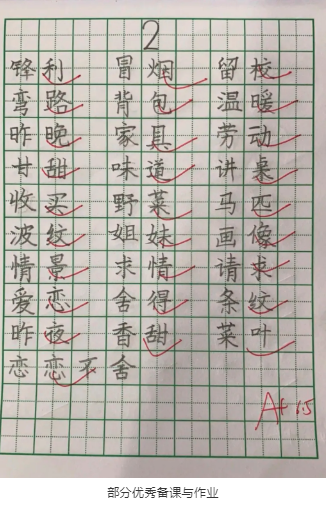 2
锋利 冒烟 留校
弯路 背包 温暖
昨晚 家具 劳动
甘甜 味道 讲桌
收买 野菜 马匹
波纹 姐妹 画像
情景 求情 请求
爱恋 舍得 条纹
昨夜 香甜 菜叶
恋恋不舍
A+ 6.5
部分优秀备课与作业